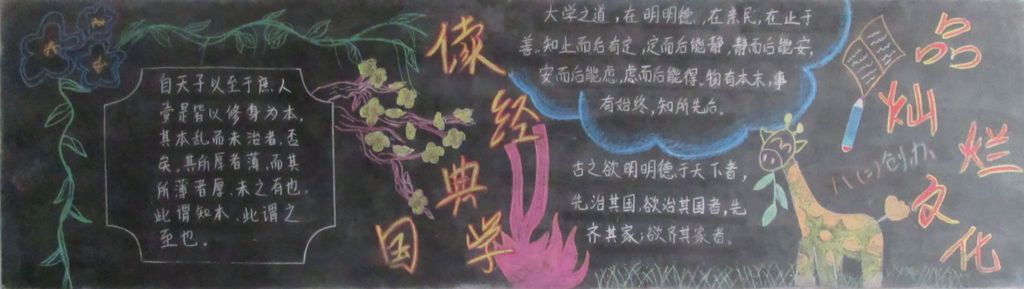 自天子以至于庶人
壹是皆以修身为本，
其本乱而末治者，否
矣，其所厚者薄，而其
所薄者厚，未之有也．
此谓知本，此谓之
至也。
读经典
国学
大学之道，在明明德，在亲民，在止于
善。知止而后有定，定而后能静，静而后能安，
安而后能虑，虑而后能得。物有本末，事
有始终，知所先后。
古之欲明明德于天下者，
先治其国，欲治其国者，先
齐其家；欲齐其家者。
品灿烂文化
八(二)创办